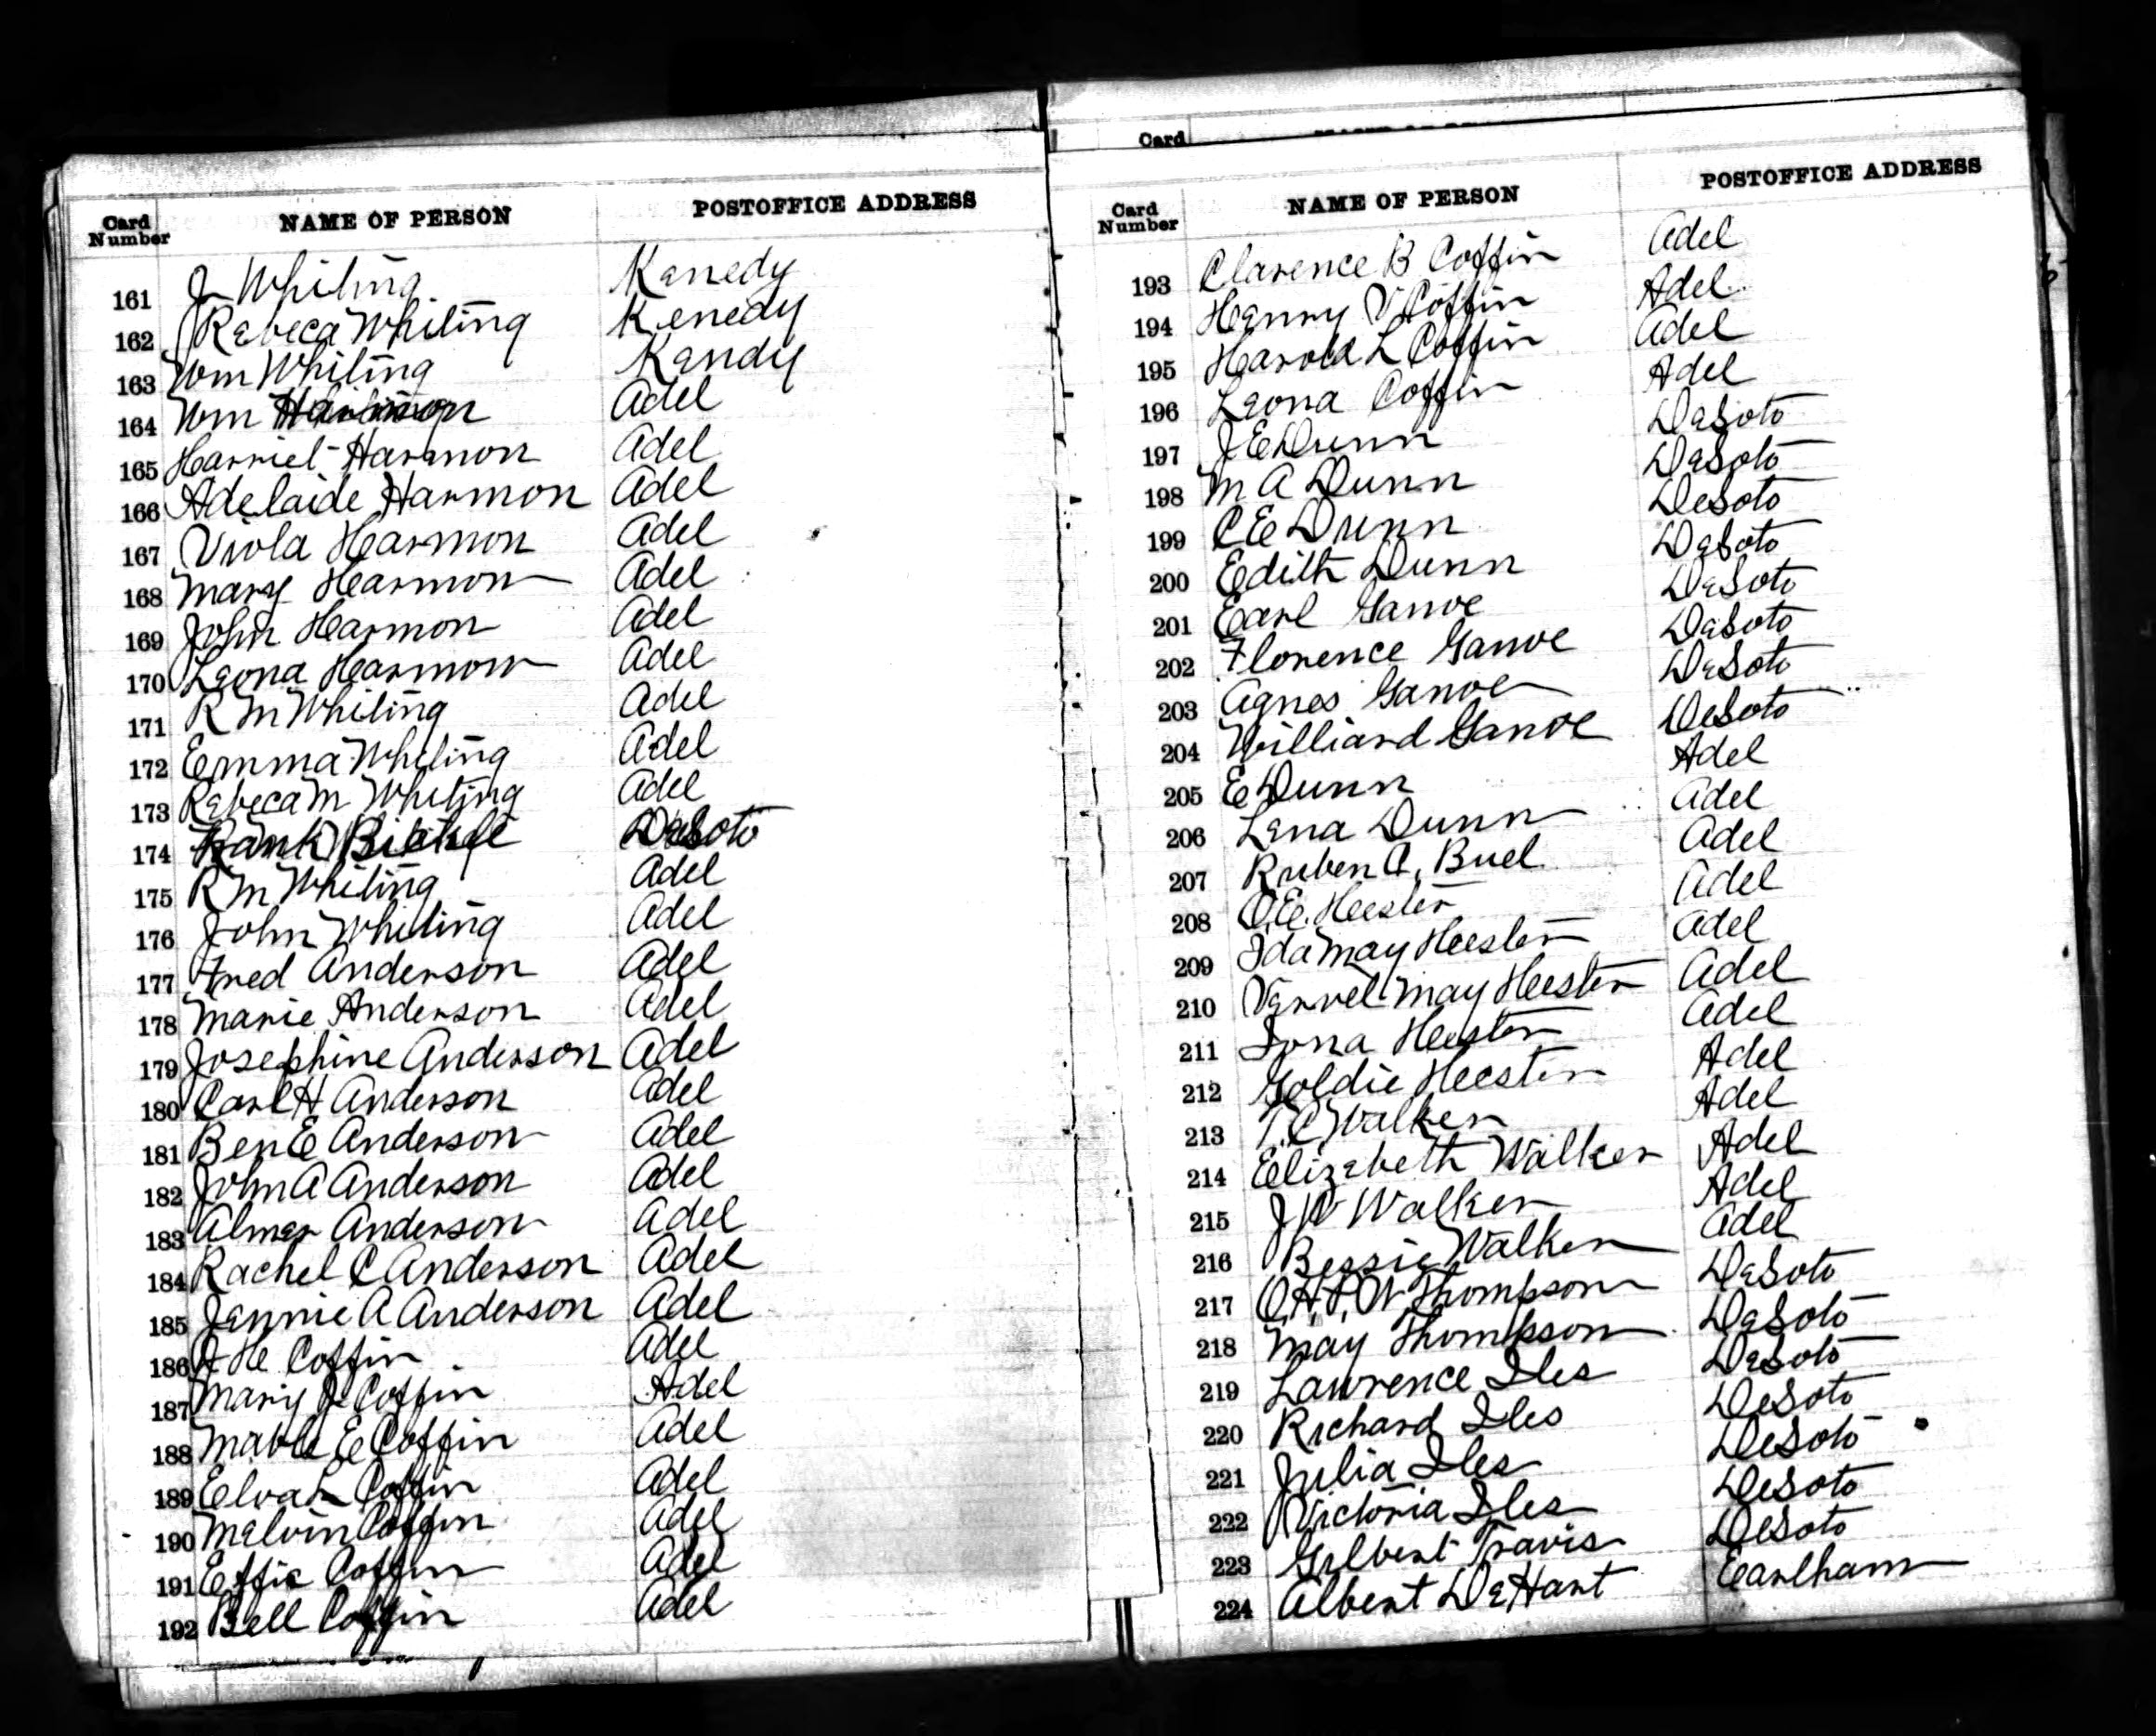 Card Number NAME OF PERSON POSTOFFICE ADDRESS
161 J Whiting Kanedy
162 Rebeca Whiting Kenedy
163 Wm Whiting Kandy
164 Wm Harmon Adel
165 Harriet Harmon Adel
166 Adelaide Harmon Adel
167 Viola Harmon Adel
168 Mary Harmon Adel
169 John Harmon Adel
170 Leona Harmon Adel
171 R M Whiting Adel
172 Emma Whiting Adel
173 Rebeca M Whiting Adel
174 Frank DeSoto
175 R M Whiting Adel
176 John Whiting Adel
177 Fred Anderson Adel
178 Marie Anderson Adel
179 Josephine Anderson Adel
180 Carl H Anderson Adel
181 Ben E Anderson Adel
182 John A Anderson Adel
183 Almer Anderson Adel
184 Rachel C Anderson Adel
185 Jennie A Anderson Adel
186 J H Coffin Adel
187 Mary J Coffin Adel
188 Mable E Coffin Adel
189 Elva L Coffin Adel
190 Melvin Coffin Adel
191 Effie Coffin Adel
192 Bell Coffin Adel
Card
Card Number NAME OF PERSON POSTOFFICE ADDRESS
193 Clarence B Coffin Adel
194 Henry V Coffin Adel
195 Harold L Coffin Adel
196 Leona Coffin Adel
197 J E Dunn DeSoto
198 M A Dunn DeSoto
199 C E Dunn DeSoto
200 Edith Dunn DeSoto
201 Earl Ganoe DeSoto
202 Florence Ganoe DeSoto
203 Agnes Ganoe DeSoto
204 Williard Ganoe DeSoto
205 E Dunn Adel
206 Lena Dunn Adel
207 Ruben A. Buel Adel
208 O.E. Heester Adel
209 Ida May Heester Adel
210 Vervel May Heester Adel
211 Iona Heester Adel
212 Goldie Heester Adel
213 T. C Walker Adel
214 Elizebeth Walker Adel
215 J W Walker Adel
216 Bessie Walker Adel
217 O.H.P.W Thompson DeSoto
218 May Thompson DeSoto
219 Lawrence Iles DeSoto
220 Richard Iles DeSoto
221 Julia Iles DeSoto
222 Victoria Iles DeSoto
223 Gilbert Travis DeSoto
224 Albert DeHart Earlham